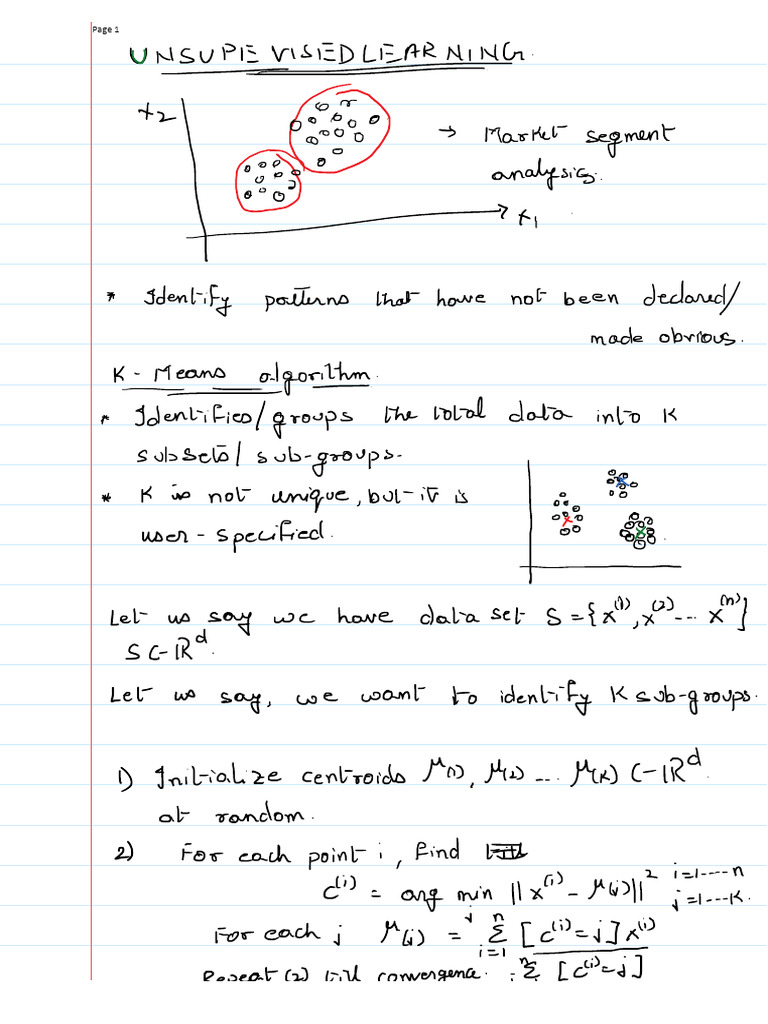 Page 1
UNSUPEVISED LEARNING.
x2
→ Market segment
analysis.
x1
* Identify patterns that have not been declared/
made obvious.
K - Means algorithm.
* Identifies/groups the total data into K
subsets/ sub-groups.
* K is not unique, but it is
user-specified.
Let us say we have data set S = {x^(1), x^(2) ... x^(n)}
S ∈ ℝ^d.
Let us say, we want to identify K sub-groups.
1) Initialize centroids μ(1), μ(2) ... μ(K) ∈ ℝ^d.
at random.
2) For each point i, find
c^(i) = arg min_j ||x^(i) - μ(j)||^2 i=1----n
j=1---K.
For each j μ(j) = Σ_{i=1}^{n} [c^(i)=j] x^(i)
Repeat (2) till convergence. Σ^n [c^(i)=j]